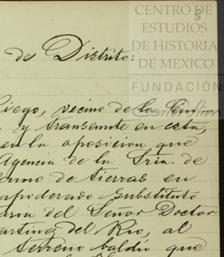 CENTRO DE
ESTUDIOS
DE HISTORIA
DE MEXICO
FUNDACIÓN
de Distrito:
Diego, vecino de la
y transeunte en esta,
en la oposicion que
Agencia de la Sría. de
de tierras en
apoderado substituto
del Señor Doctor
Martinez del Rio, al
terreno baldío que